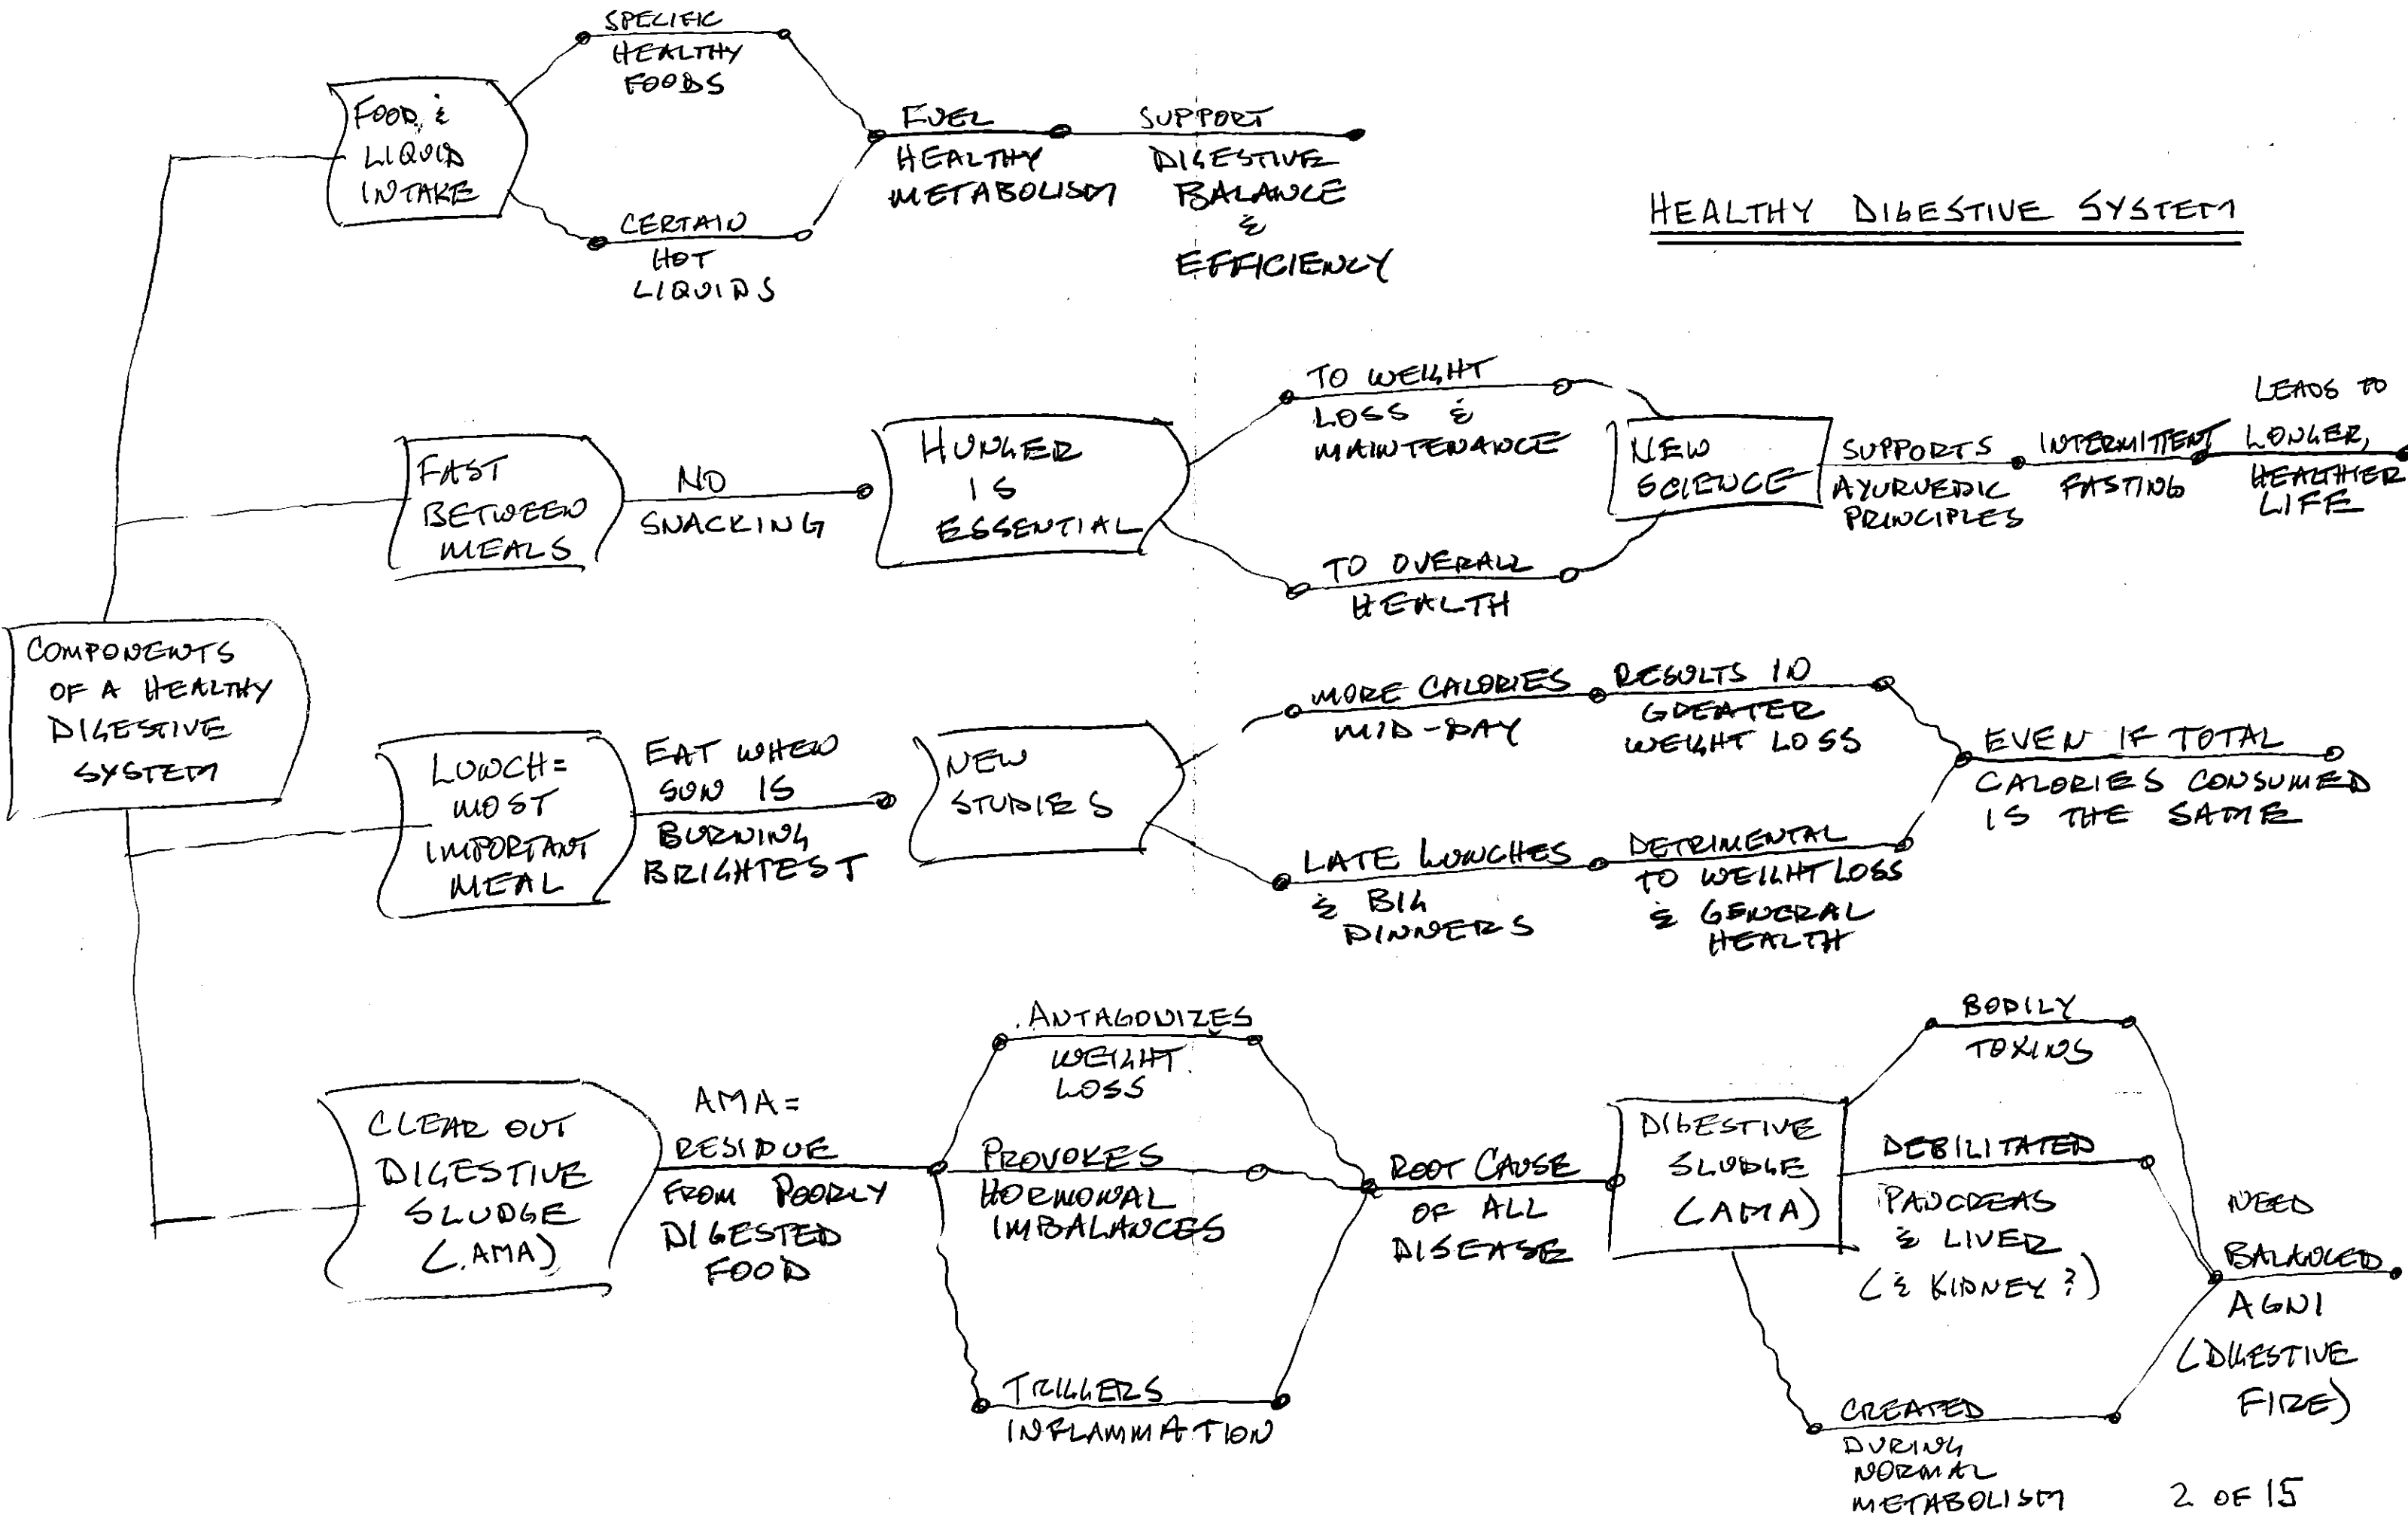 HEALTHY DIGESTIVE SYSTEM
COMPONENTS
OF A HEALTHY
DIGESTIVE
SYSTEM
FOOD &
LIQUID
INTAKE
SPECIFIC
HEALTHY
FOODS
CERTAIN
HOT
LIQUIDS
FUEL
HEALTHY
METABOLISM
SUPPORT
DIGESTIVE
BALANCE
&
EFFICIENCY
FAST
BETWEEN
MEALS
NO
SNACKING
HUNGER
IS
ESSENTIAL
TO WEIGHT
LOSS &
MAINTENANCE
TO OVERALL
HEALTH
NEW
SCIENCE
SUPPORTS
AYURVEDIC
PRINCIPLES
INTERMITTENT
FASTING
LEADS TO
LONGER,
HEALTHIER
LIFE
LUNCH=
MOST
IMPORTANT
MEAL
EAT WHEN
SUN IS
BURNING
BRIGHTEST
NEW
STUDIES
MORE CALORIES
MID-DAY
RESULTS IN
GREATER
WEIGHT LOSS
LATE LUNCHES
& BIG
DINNERS
DETRIMENTAL
TO WEIGHT LOSS
& GENERAL
HEALTH
EVEN IF TOTAL
CALORIES CONSUMED
IS THE SAME
CLEAR OUT
DIGESTIVE
SLUDGE
(AMA)
AMA=
RESIDUE
FROM POORLY
DIGESTED
FOOD
ANTAGONIZES
WEIGHT
LOSS
PROVOKES
HORMONAL
IMBALANCES
TRIGGERS
INFLAMMATION
ROOT CAUSE
OF ALL
DISEASE
DIGESTIVE
SLUDGE
(AMA)
BODILY
TOXINS
DEBILITATED
PANCREAS
& LIVER
(& KIDNEY?)
CREATED
DURING
NORMAL
METABOLISM
NEED
BALANCED
AGNI
(DIGESTIVE
FIRE)
2 OF 15